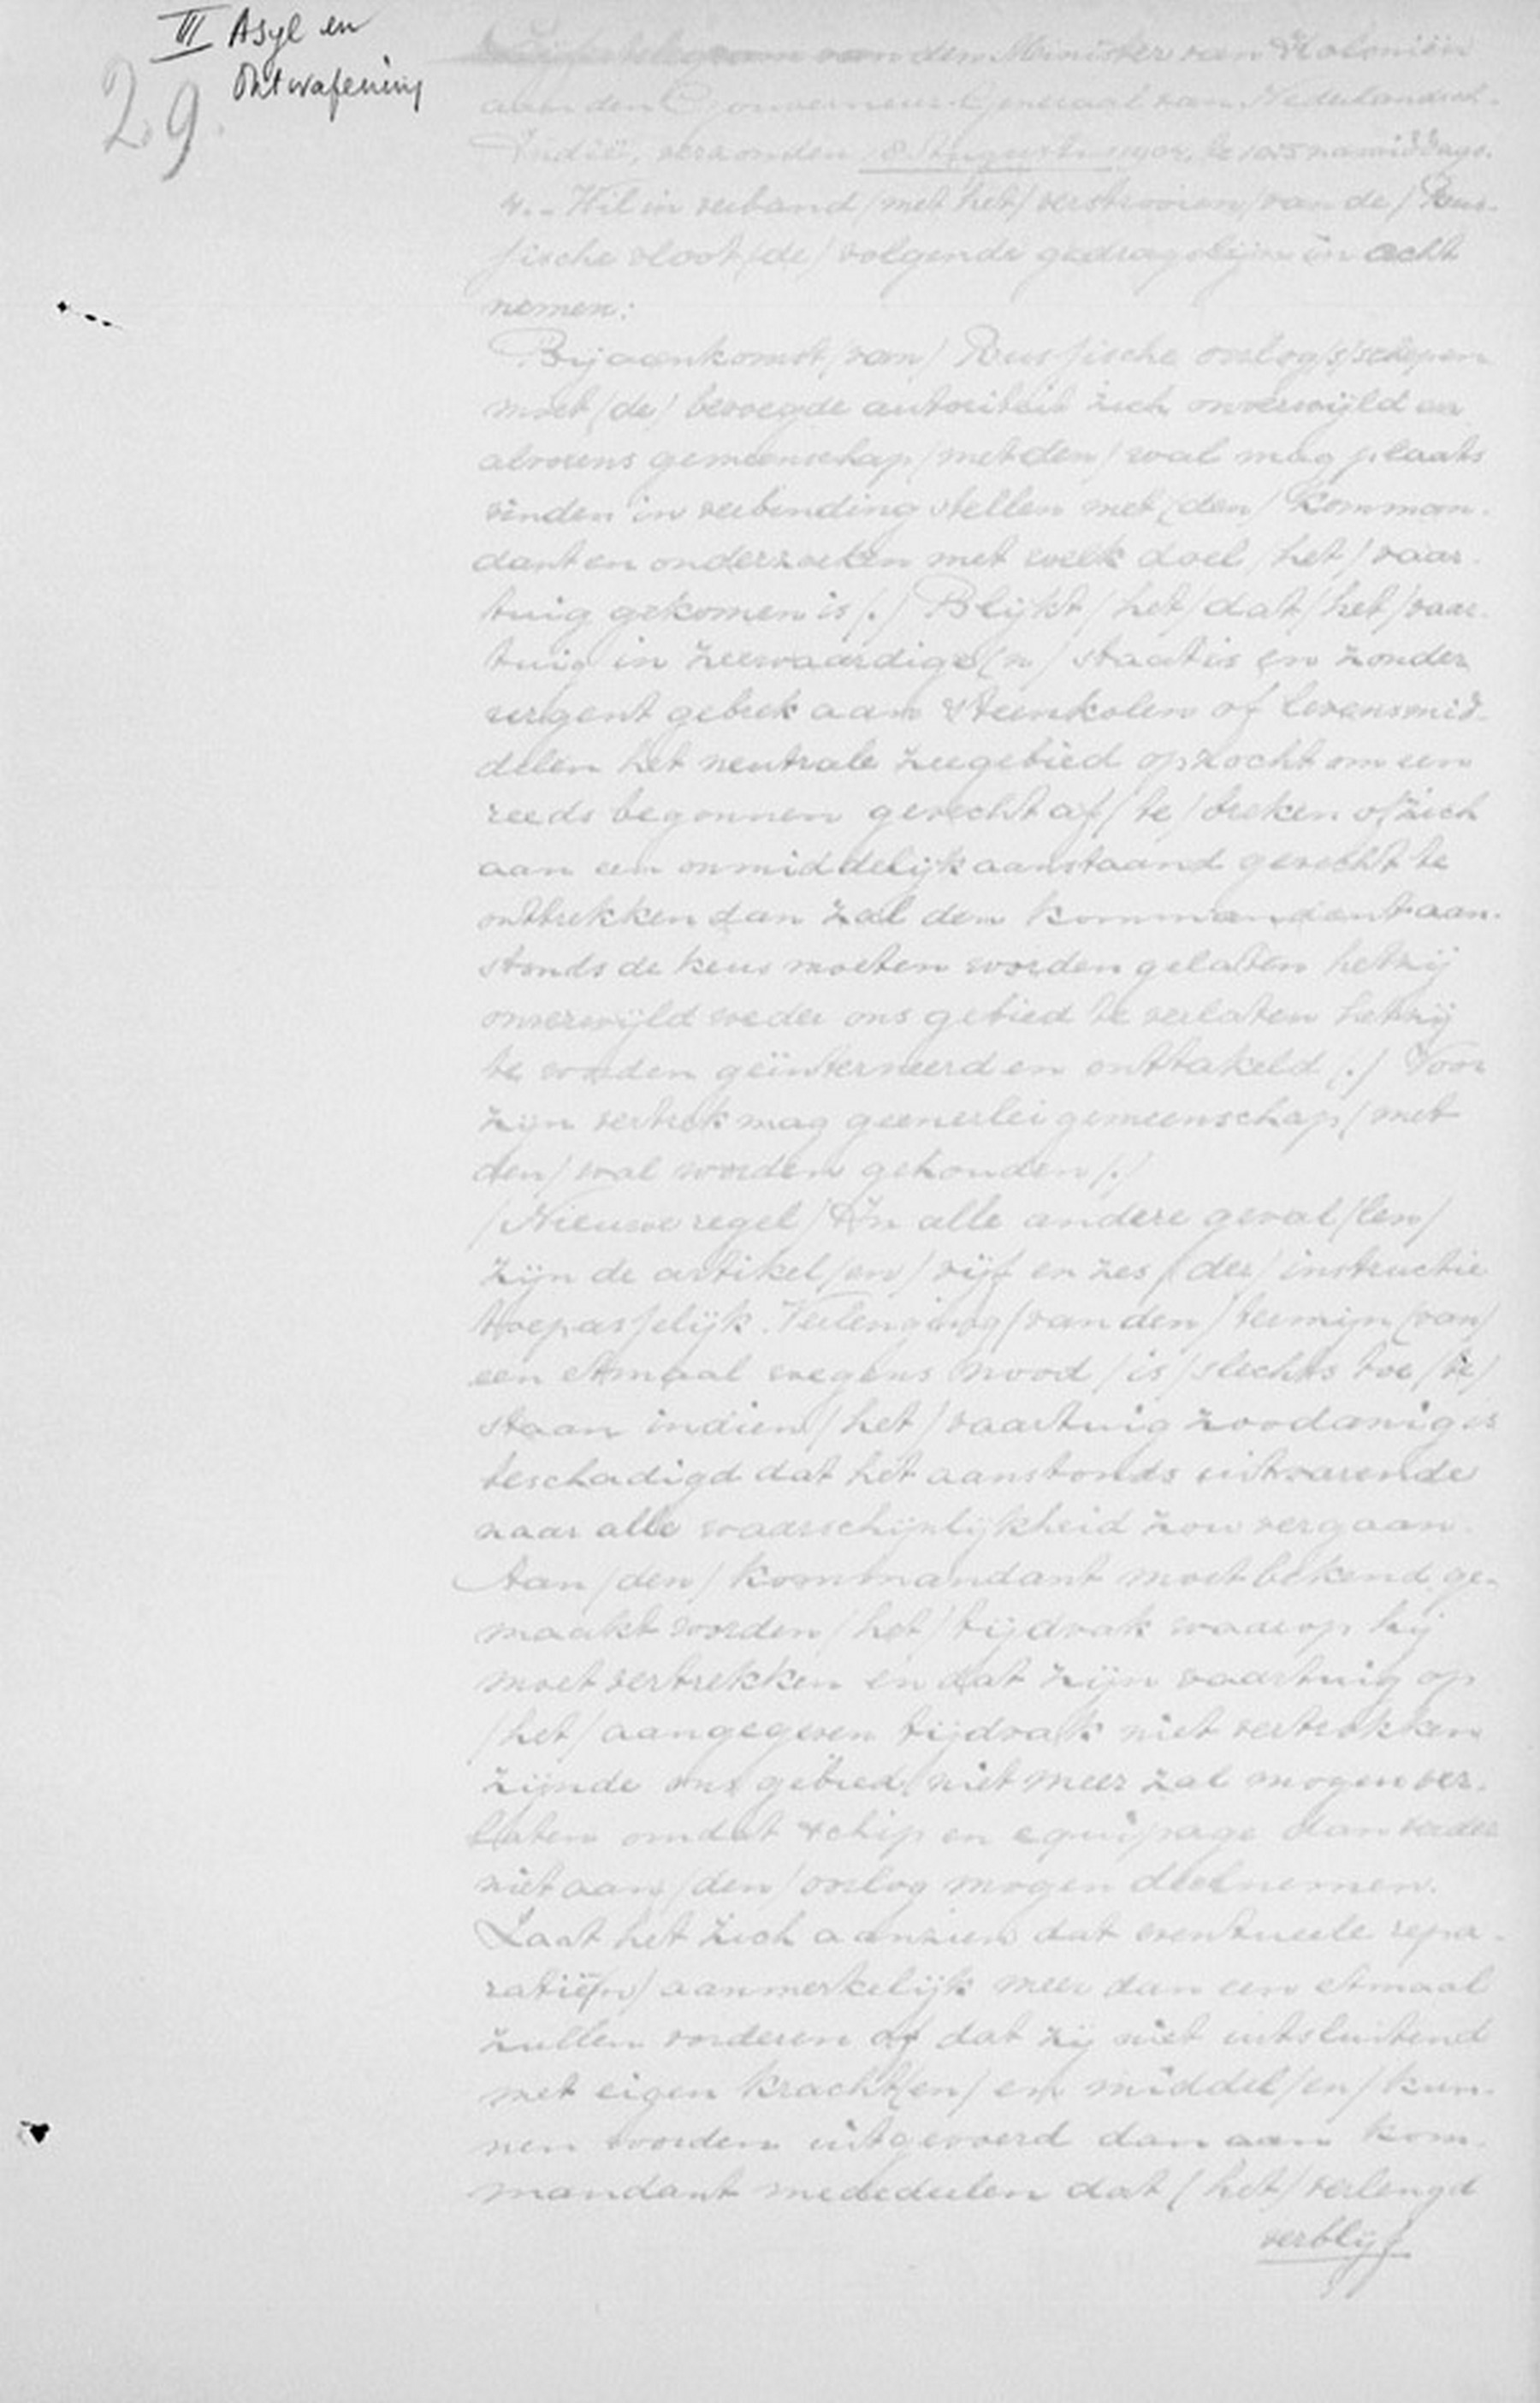 III Asyl en
Ontwapening
29.
Cijfertelegram van den Minister van Koloniën
aan den Gouverneur-Generaal van Nederlandsch-
Indië, verzonden 18 Augustus 1904, te 10.25 namiddags.
4.- Wil in verband /met het/ verstrooien /van de/ Rus-
sische vloot /de/ volgende gedragslijn in acht
nemen:
Bij aankomst /van/ Russische oorlog/s/schepen
moet /de/ bevoegde autoriteit zich onverwijld en
alvorens gemeenschap /met den/ wal mag plaats
vinden in verbinding stellen met /den/ kommon-
dant en onderzoeken met welk doel /het/ vaar-
tuig gekomen is /./ Blijkt /het/ dat /het/ vaar-
tuig in zeewaardige/n/ staat is en zonder
urgent gebrek aan steenkolen of levensmid-
delen het neutrale zeegebied opzocht om een
reeds begonnen gevecht af /te/ breken of zich
aan een onmiddelijk aanstaand gevecht te
onttrekken dan zal den kommandant aan-
stonds de keus moeten worden gelaten hetzij
onverwijld weder ons gebied te verlaten hetzij
te worden geïnterneerd en onttakeld /./ Voor
zijn vertrek mag geenerlei gemeenschap /met
den/ wal worden gehouden /./
/Nieuwe regel/ In alle andere geval/len/
zijn de artikel/en/ vijf en zes /der/ instructie
toepasselijk. Verlenging /van den/ termijn /van/
een etmaal wegens nood /is/ slechts toe /te/
staan indien /het/ vaartuig zoodanig is
beschadigd dat het aanstonds uitvarende
naar alle waarschijnlijkheid zou vergaan.
Aan /den/ kommandant moet bekend ge-
maakt worden /het/ tijdvak waarop hij
moet vertrekken en dat zijn vaartuig op
/het/ aangegeven tijdvak niet vertrokken
zijnde ons gebied niet meer zal mogen ver-
laten omdat schip en equipage dan verder
niet aan /den/ oorlog mogen deelnemen.
Laat het zich aanzien dat eventueele repa-
ratië/n/ aanmerkelijk meer dan een etmaal
zullen vorderen of dat zij niet uitsluitend
met eigen kracht/en/ en middel/en/ kun-
nen worden uitgevoerd dan aan kom-
mandant mededeelen dat /het/ verlengd
verblijf